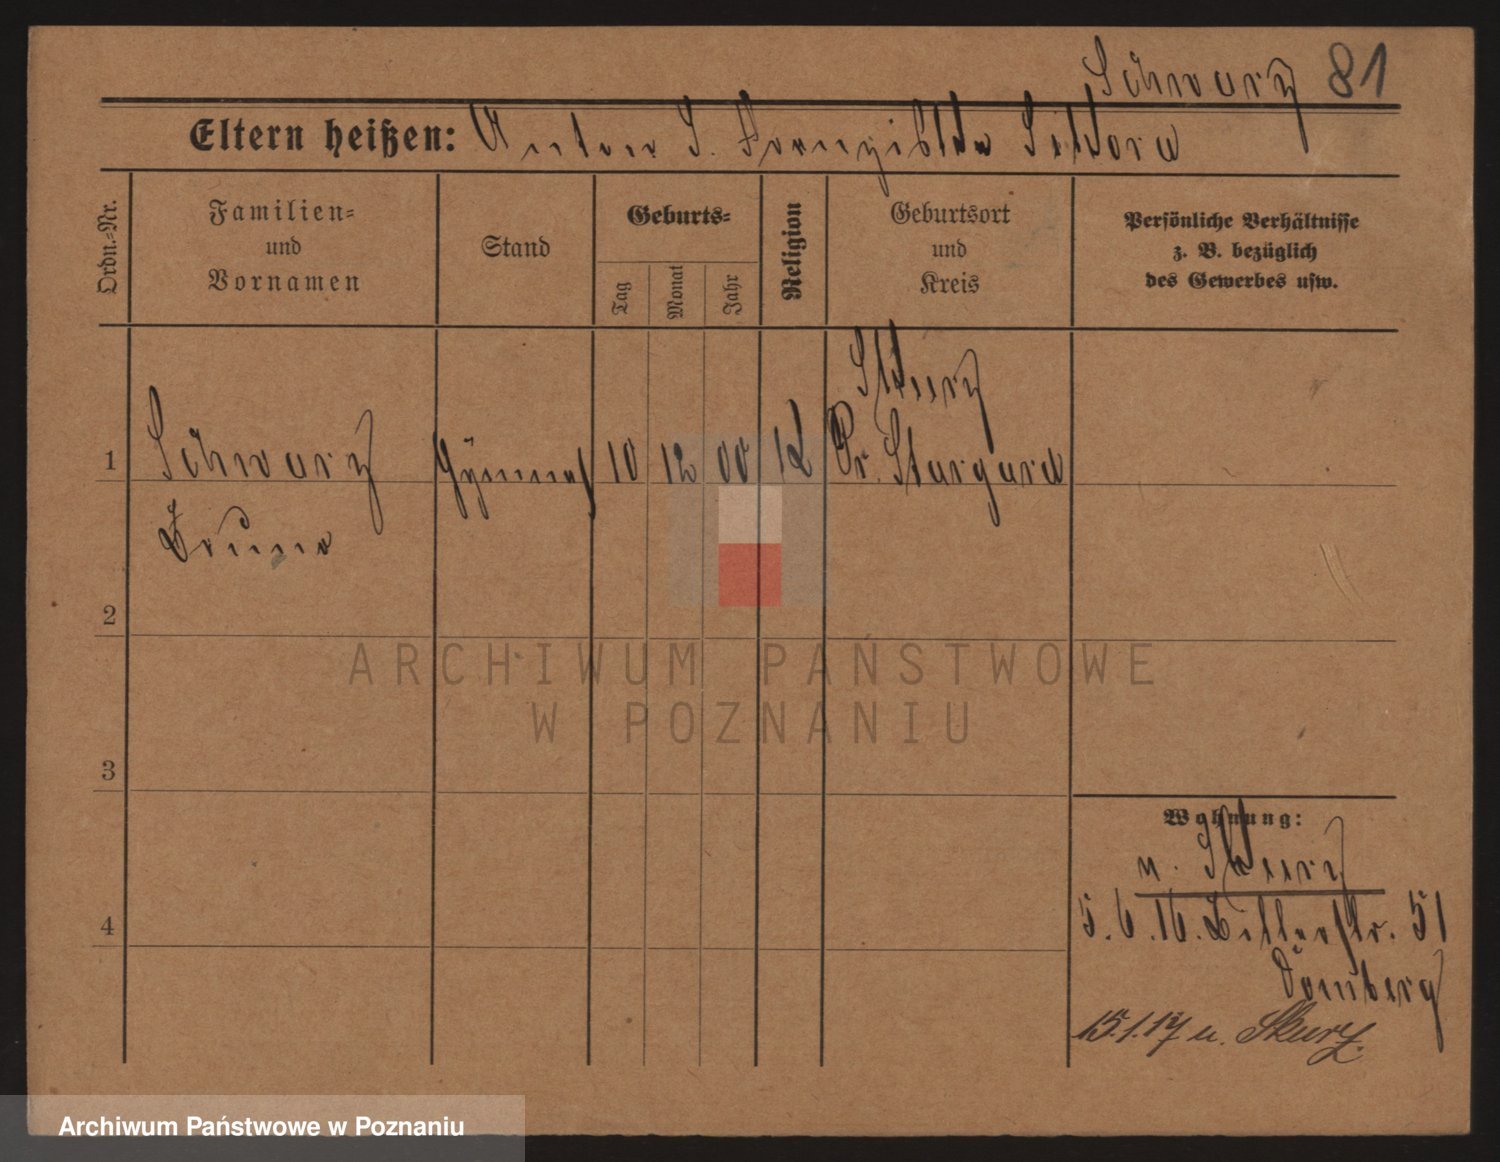 Schwarz 81
Eltern heißen: Anton S. Franziska
Ordn.=Nr.
Familien=
und
Vornamen
Stand
Geburts=
Tag
Monat
Jahr
Religion
Geburtsort
und
Kreis
Persönliche Verhältnisse
z. B. bezüglich
des Gewerbes usw.
Skurz
1 Schwarz 10 12 00 Pr. Stargard
Bruno
2
ARCHIWUM PAŃSTWOWE
W POZNANIU
3
Wohnung:
n. Skurz
4
5.6.16. Bitterstr. 51
Domberg
15.1.17 n. Skurz.
Archiwum Państwowe w Poznaniu